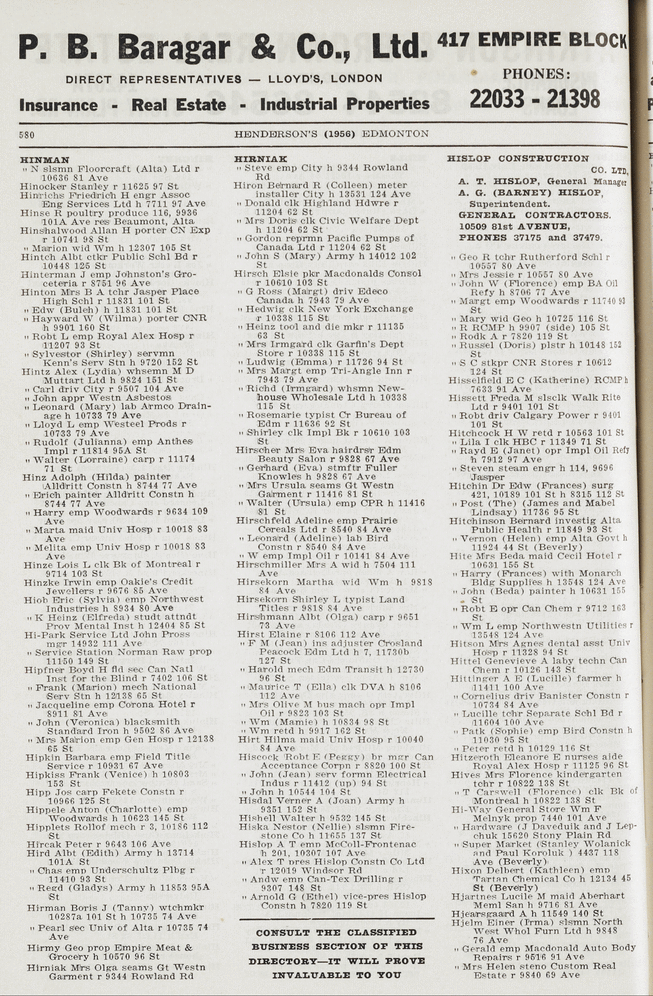 P. B. Baragar & Co., Ltd. 417 EMPIRE BLOCK
DIRECT REPRESENTATIVES — LLOYD'S, LONDON
PHONES:
Insurance - Real Estate - Industrial Properties
22033 - 21398
580
HENDERSON'S (1956) EDMONTON
HINMAN
" N slsmn Floorcraft (Alta) Ltd r
10636 81 Ave
Hinocker Stanley r 11625 97 St
Hinrichs Friedrich H engr Assoc
Eng Services Ltd h 7711 97 Ave
Hinse R poultry produce 116, 9936
101A Ave res Beaumont, Alta
Hinshalwood Allan H porter CN Exp
r 10741 98 St
" Marion wid Wm h 12307 105 St
Hintch Albt ctkr Public Schl Bd r
10448 125 St
Hinterman J emp Johnston's Gro-
ceteria r 8751 96 Ave
Hinton Mrs B A tchr Jasper Place
High Schl r 11831 101 St
" Edw (Buleh) h 11831 101 St
" Hayward W (Wilma) porter CNR
h 9901 160 St
" Robt L emp Royal Alex Hosp r
11207 93 St
" Sylvestor (Shirley) servmn
Kenn's Serv Stn h 9720 152 St
Hintz Alex (Lydia) whsemn M D
Muttart Ltd h 9824 151 St
" Carl driv City r 9507 104 Ave
" John appr Westn Asbestos
" Leonard (Mary) lab Armco Drain-
age h 10733 79 Ave
" Lloyd L emp Westeel Prods r
10733 79 Ave
" Rudolf (Julianna) emp Anthes
Impl r 11814 95A St
" Walter (Lorraine) carp r 11174
71 St
Hinz Adolph (Hilda) painter
Alldritt Constn h 8744 77 Ave
" Erich painter Alldritt Constn h
8744 77 Ave
" Harry emp Woodwards r 9634 109
Ave
" Marta maid Univ Hosp r 10018 83
Ave
" Melita emp Univ Hosp r 10018 83
Ave
Hinze Lois L clk Bk of Montreal r
9714 103 St
Hinzke Irwin emp Oakie's Credit
Jewellers r 9676 85 Ave
Hiob Eric (Sylvia) emp Northwest
Industries h 8934 80 Ave
" K Heinz (Elfreda) studt attndt
Prov Mental Inst h 12404 85 St
Hi-Park Service Ltd John Pross
mgr 14932 111 Av
" Service Station Norman Raw prop
11150 149 St
Hipfner Boyd H fld sec Can Natl
Inst for the Blind r 7402 106 St
" Frank (Marion) mech National
Serv Stn h 12138 65 St
" Jacqueline emp Corona Hotel r
8911 81 Ave
" John (Veronica) blacksmith
Standard Iron h 9502 86 Ave
" Mrs Marion emp Gen Hosp r 12138
65 St
Hipkin Barbara emp Field Title
Service r 10931 67 Ave
Hipkiss Frank (Venice) h 10803
153 St
Hipp Jos carp Fekete Constn r
10966 125 St
Hippele Anton (Charlotte) emp
Woodwards h 10623 145 St
Hipplets Rollof mech r 3, 10186 112
St
Hircak Peter r 9643 106 Ave
Hird Albt (Edith) Army h 13714
101A St
" Chas emp Underschultz Plbg r
11410 93 St
" Regd (Gladys) Army h 11853 95A
St
Hirman Boris J (Tanny) wtchmkr
10287a 101 St h 10735 74 Ave
" Pearl sec Univ of Alta r 10735 74
Ave
Hirmy Geo prop Empire Meat &
Grocery h 10570 96 St
Hirniak Mrs Olga seams Gt Westn
Garment r 9344 Rowland Rd
HIRNIAK
" Steve emp City h 9344 Rowland
Rd
Hiron Bernard R (Colleen) meter
installer City h 13531 124 Ave
" Donald clk Highland Hdwre r
11204 62 St
" Mrs Doris clk Civic Welfare Dept
h 11204 62 St
" Gordon reprmn Pacific Pumps of
Canada Ltd r 11204 62 St
" John S (Mary) Army h 14012 102
St
Hirsch Elsie pkr Macdonalds Consol
r 10610 103 St
" G Ross (Margt) driv Edeco
Canada h 7943 79 Ave
" Hedwig clk New York Exchange
r 10338 115 St
" Heinz tool and die mkr r 11135
63 St
" Mrs Irmgard clk Garfin's Dept
Store r 10338 115 St
" Ludwig (Emma) r 11726 94 St
" Mrs Margt emp Tri-Angle Inn r
7943 79 Ave
" Richd (Irmgard) whsmn New-
house Wholesale Ltd h 10338
115 St
" Rosemarie typist Cr Bureau of
Edm r 11636 92 St
" Shirley clk Impl Bk r 10610 103
St
Hirscher Mrs Eva hairdrsr Edm
Beauty Salon r 9828 67 Ave
" Gerhard (Eva) stmftr Fuller
Knowles h 9828 67 Ave
" Mrs Ursula seams Gt Westn
Garment r 11416 81 St
" Walter (Ursula) emp CPR h 11416
81 St
Hirschfeld Adeline emp Prairie
Cereals Ltd r 8540 84 Av
" Leonard (Adeline) lab Bird
Constn r 8540 84 Av
" W emp Impl Oil r 10141 84 Av
Hirschmiller Mrs A wid h 7504 111
Ave
Hirsekorn Martha wid Wm h 9818
84 Ave
Hirsekorn Shirley L typist Land
Titles r 9818 84 Ave
Hirshmann Albt (Olga) carp r 9651
73 Ave
Hirst Elaine r 8106 112 Av
" F M (Jean) ins adjuster Crosland
Peacock Edm Ltd h 7, 11730b
127 St
" Harold mech Edm Transit h 12730
96 St
" Maurice T (Ella) clk DVA h 8106
112 Ave
" Mrs Olive M bus mach opr Impl
Oil r 9823 103 St
" Wm (Mamie) h 10834 98 St
" Wm retd h 9917 162 St
Hirt Hilma maid Univ Hosp r 10040
84 Ave
Hiscock Robt E (Peggy) br mgr Can
Acceptance Corpn r 8820 100 St
" John (Jean) serv formn Electrical
Indus r 11412 (up) 94 St
" John h 10544 104 St
Hisdal Verner A (Joan) Army h
9351 152 St
Hishell Walter h 9532 145 St
Hiska Nestor (Nellie) slsmn Fire-
stone Co h 11655 137 St
Hislop A T emp McColl-Frontenac
h 201, 10307 107 Av
" Alex T pres Hislop Constn Co Ltd
r 12019 Windsor Rd
" Andw emp Can-Tex Drilling r
9307 148 St
" Arnold G (Ethel) vice-pres Hislop
Constn h 7820 119 St
CONSULT THE CLASSIFIED
BUSINESS SECTION OF THIS
DIRECTORY—IT WILL PROVE
INVALUABLE TO YOU
HISLOP CONSTRUCTION
CO. LTD,
A. T. HISLOP, General Manager
A. G. (BARNEY) HISLOP,
Superintendent.
GENERAL CONTRACTORS.
10509 81st AVENUE,
PHONES 37175 and 37479.
" Geo R tchr Rutherford Schl r
10557 80 Ave
" Mrs Jessie r 10557 80 Ave
" John W (Florence) emp BA Oil
Refy h 8706 77 Av
" Margt emp Woodwards r 11740 93
St
" Mary wid Geo h 10725 116 St
" R RCMP h 9907 (side) 105 St
" Rodk A r 7820 119 St
" Russel (Doris) plstr h 10148 152
St
" S C stkpr CNR Stores r 10612
124 St
Hisselfield E C (Katherine) RCMP h
7633 91 Ave
Hissett Freda M slsclk Walk Rite
Ltd r 9401 101 St
" Robt driv Calgary Power r 9401
101 St
Hitchcock H W retd r 10563 101 St
" Lila I clk HBC r 11349 71 St
" Rayd E (Janet) opr Impl Oil Refy
h 7912 97 Av
" Steven steam engr h 114, 9696
Jasper
Hitchin Dr Edw (Frances) surg
421, 10189 101 St h 8315 112 St
" Post (The) (James and Mabel
Lindsay) 11736 95 St
Hitchinson Bernard investig Alta
Public Health r 11849 93 St
" Vernon (Helen) emp Alta Govt h
11924 44 St (Beverly)
Hite Mrs Beda maid Cecil Hotel r
10631 155 St
" Harry (Frances) with Monarch
Bldg Supplies h 13548 124 Ave
" John (Beda) painter h 10631 155
St
" Robt E opr Can Chem r 9712 163
St
" Wm L emp Northwestn Utilities r
13548 124 Ave
Hitson Mrs Agnes dental asst Univ
Hosp r 11328 94 St
Hittel Genevieve A laby techn Can
Chem r 10126 143 St
Hittinger A E (Lucille) farmer h
11411 100 Av
" Cornelius driv Banister Constn r
10734 84 Av
" Lucille tchr Separate Schl Bd r
11604 100 Av
" Patk (Sophie) emp Bird Constn h
11030 95 St
" Peter retd h 10129 116 St
Hitzeroth Eleanore E nurses aide
Royal Alex Hosp r 11125 96 St
Hives Mrs Florence kindergarten
tchr r 10822 138 St
" T Carswell (Florence) clk Bk of
Montreal h 10822 138 St
Hi-Way General Store Wm F
Melnyk prop 7440 101 Av
" Hardware (J Daveduik and J Lep-
chuk 15620 Stony Plain Rd
" Super Market (Stanley Wolanick
and Paul Koroluk ) 4437 118
Ave (Beverly)
Hixon Delbert (Kathleen) emp
Tartan Chemical Co h 12134 45
St (Beverly)
Hjartnes Lucile M maid Aberhart
Meml San h 9716 81 Av
Hjearsgaard A h 11549 140 St
Hjelm Einer (Irma) slsmn North
West Whol Furn Ltd h 9848
76 Av
" Gerald emp Macdonald Auto Body
Repairs r 9516 91 Av
" Mrs Helen steno Custom Real
Estate r 9840 69 Av